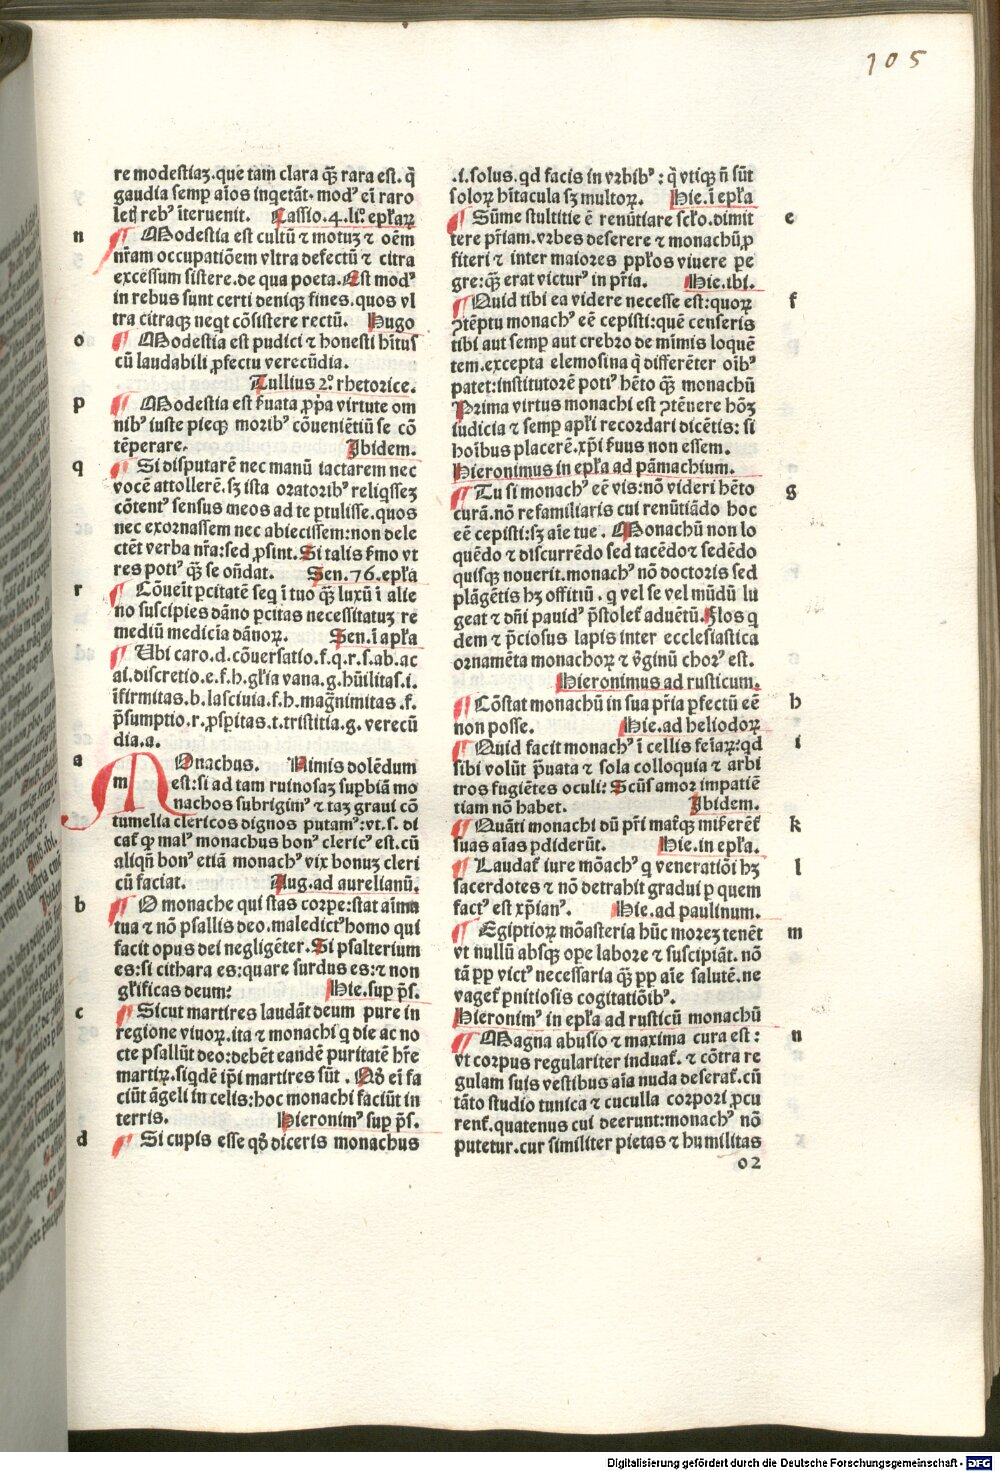 105
re modestiaʒ. que tam clara q̃ʒ rara est. q̃
gaudia semꝑ aĩos inqetãt. modꝰ eĩ raro
letꝭ rebꝰ ĩteruenit. Cassio.4.liº. epl̃aꝝ
n
¶ Modestia est cultũ ⁊ motuʒ ⁊ oẽm
nr̃am occupatiõem vltra defectũ ⁊ citra
excessum sistere. de qua poeta. Est modꝰ
in rebus sunt certi deniqʒ fines. quos vl
tra citraqʒ neqt cõsistere rectũ. Hugo
o
¶ Modestia est pudici ⁊ honesti hĩtus
cũ laudabili ꝓfectu verecũdia.
Tullius 2º. rhetorice.
p
¶ Modestia est ẜuata ꝓp̃a virtute om
nibꝰ iuste pieqʒ moribꝰ cõueniẽtiũ se cõ
tẽperare. Ibidem.
q
¶ Si disputarẽ nec manũ iactarem nec
vocẽ attollerẽ. sʒ ista oratoribꝰ reliqsseʒ
cõtentꝰ sensus meos ad te ꝑtulisse. quos
nec exornassem nec abiecissem: non dele
ctẽt verba nr̃a: sed ꝓsint. Si talis ẜmo vt
res potiꝰ q̃ʒ se oñdat. Sen.76.epl̃a
r
¶ Cõueĩt ꝑcitatẽ seq ĩ tuo q̃ʒ luxũ ĩ alie
no suscipies dãno ꝑcitas necessitatuʒ re
mediũ medicĩa dãnoꝝ. Sen.ĩ apl̃a
¶ Vbi caro.d.cõuersatio.f.q.r.s.ab.ac
ai.discretio.e.f.h.gl̃ia vana.g.hũilitas.i.
ĩfirmitas.b.lasciuia.f.h.mag̃nimitas.f.
p̃sumptio.r.ꝓsꝑitas.t.tristitia.g.verecũ
dia.a.
a
MOnachus. Nimis dolẽdum
m
est: si ad tam ruinosaʒ suꝑbiã mo
nachos subriginꝰ ⁊ taʒ graui cõ
tumelia clericos dignos putamꝰ: vt.s. di
cat̃ ꝙ malꝰ monachus bonꝰ clericꝰ est. cũ
aliqñ bonꝰ etiã monachꝰ vix bonuʒ cleri
cũ faciat. Aug.ad aurelianũ.
b
¶ O monache qui stas corꝑe: stat aĩma
tua ⁊ nõ psallis deo. maledictꝰ homo qui
facit opus dei negligẽter. Si psalterium
es: si cithara es: quare surdus es: ⁊ non
gl̃ificas deum? Hie.suꝑ p̃s.
c
¶ Sicut martires laudãt deum pure in
regione viuoꝝ. ita ⁊ monachi q die ac no
cte psallũt deo: debẽt eandẽ puritatẽ hr̃e
martiꝝ. siqdẽ ip̃i martires sũt. Qð eĩ fa
ciũt ãgeli in celis: hoc monachi faciũt in
terris. Hieronimꝰ suꝑ p̃s.
d
¶ Si cupis esse qð diceris monachus
.i.solus. qd facis in vrbibꝰ: q̃ vtiqʒ ñ sũt
soloꝝ hĩtacula sʒ multoꝝ. Hie.ĩ epl̃a
e
¶ Sũme stultitie ẽ renũtiare scl̃o. dimit
tere pr̃iam. vrbes deserere ⁊ monachũ ꝓ
fiteri ⁊ inter maiores ppl̃os viuere pe
gre: q̃ʒ erat victurꝰ in pr̃ia. Hie.ibi.
f
¶ Quid tibi ea videre necesse est: quoꝝ
ꝯtẽptu monachꝰ eẽ cepisti: quẽ censeris
tibi aut semꝑ aut crebro de mĩmis loquẽ
tem. excepta elemosina q̃ differẽter oĩbꝰ
patet: institutorẽ potiꝰ hẽto q̃ʒ monachũ
Prima virtus monachi est ꝯtẽnere hõʒ
iudicia ⁊ semꝑ apl̃i recordari dicẽtis: si
hoĩbus placerẽ. xp̃i ẜuus non essem.
Hieronimus in epl̃a ad pãmachium.
g
¶ Tu si monachꝰ eẽ vis: nõ videri hẽto
curã. nõ rei familiaris cui renũtiãdo hoc
eẽ cepisti: sʒ aĩe tue. Monachũ non lo
quẽdo ⁊ discurrẽdo sed tacẽdo ⁊ sedẽdo
quisqʒ nouerit. monachꝰ nõ doctoris sed
plãgẽtis hʒ offitiũ. q vel se vel mũdũ lu
geat ⁊ dñi pauidꝰ p̃stolet̃ aduẽtũ. Flos q
dem ⁊ p̃ciosus lapis inter ecclesiastica
ornamẽta monachoꝝ ⁊ v̾ginũ chorꝰ est.
Hieronimus ad rusticum.
h
¶ Cõstat monachũ in sua pr̃ia ꝑfectũ eẽ
non posse. Hie.ad heliodoꝝ
i
¶ Quid facit monachꝰ ĩ cellis feĩaꝝ: qd
sibi volũt p̃uata ⁊ sola colloquia ⁊ arbi
tros fugiẽtes oculi: Scũs amor impatiẽ
tiam nõ habet. Ibidem.
k
¶ Quãti monachi dũ pr̃i mat̃qʒ miẜerẽt̃
suas aĩas ꝑdiderũt. Hie.in epl̃a.
l
¶ Laudat̃ iure mõachꝰ q veneratiõi hʒ
sacerdotes ⁊ nõ detrahit gradui ꝑ quem
factꝰ est xp̃ianꝰ. Hie.ad paulinum.
m
¶ Egiptioꝝ mõasteria hũc moreʒ tenẽt
vt nullũ absqʒ ope labore ⁊ suscipiãt. nõ
tã ꝓp victꝰ necessaria q̃ʒ ꝓp aĩe salutẽ. ne
vaget̃ ꝑnitiosis cogitatiõibꝰ.
Hieronimꝰ in epl̃a ad rusticũ monachũ
n
¶ Magna abusio ⁊ maxima cura est:
vt corpus regulariter induat̃. ⁊ cõtra re
gulam suis vestibus aĩa nuda deserat̃. cũ
tãto studio tunica ⁊ cuculla corpori ꝓcu
rent̃. quatenus cui deerunt: monachꝰ nõ
putetur. cur similiter pietas ⁊ humilitas
o2
Digitalisierung gefördert durch die Deutsche Forschungsgemeinschaft - DFG